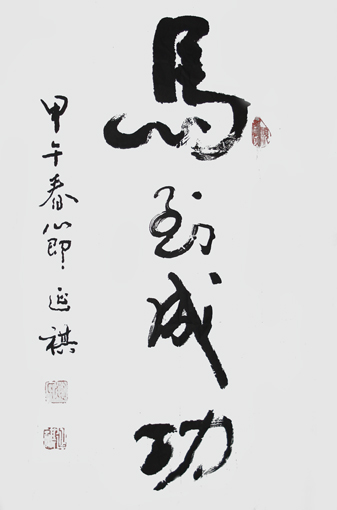 馬到成功
甲午春節 延祺